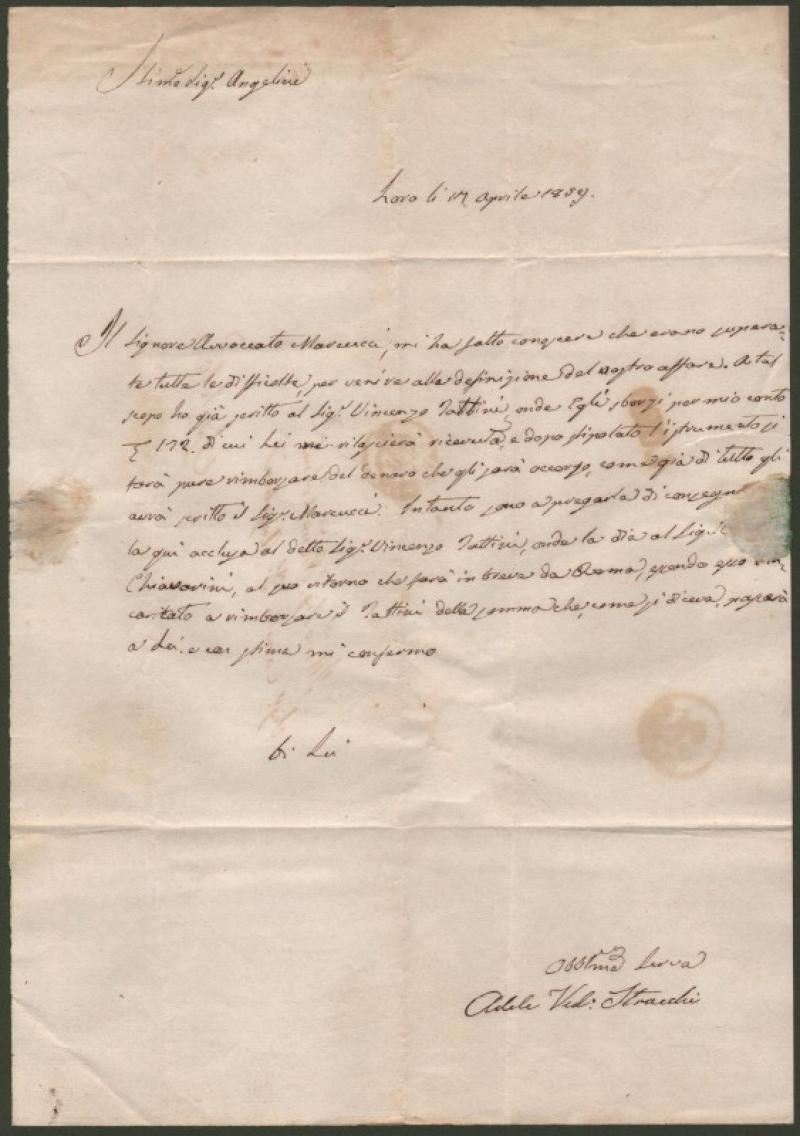 Stimo Sigr. Angelini
Loro li 17 Aprile 1839.
Il Signore Avvoccato Marcucci, mi ha fatto conoscere che erano supera-
te tutte le difficoltà, per venire alla definizione del nostro affare. A tal
scopo ho già scritto al Sigr. Vincenzo Tattini, onde Egli sborsi per mio conto
172. di cui Lei me rilascierà ricevuta, e dopo stipolato l'istrumento si
farà pure rimborsare del denaro che gli sarà occorso, come già di tutto gli
avrà scritto il Sigr. Marcucci. Intanto sono a pregarla di consegn
la quì acclusa al detto Sigr. Vincenzo Tattini, onde la dia al Sigr.
Chiavarini, al suo ritorno che sarà in breve da Roma, essendo esso in-
caritato a rimborsare il Tattini della somma che, come si diceva, passerà
a Lei. e con stima mi confermo
Di Lei
Obblma Serva
Adele Veda. Stracchi